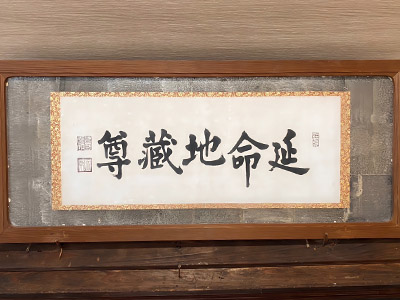 延命地藏尊